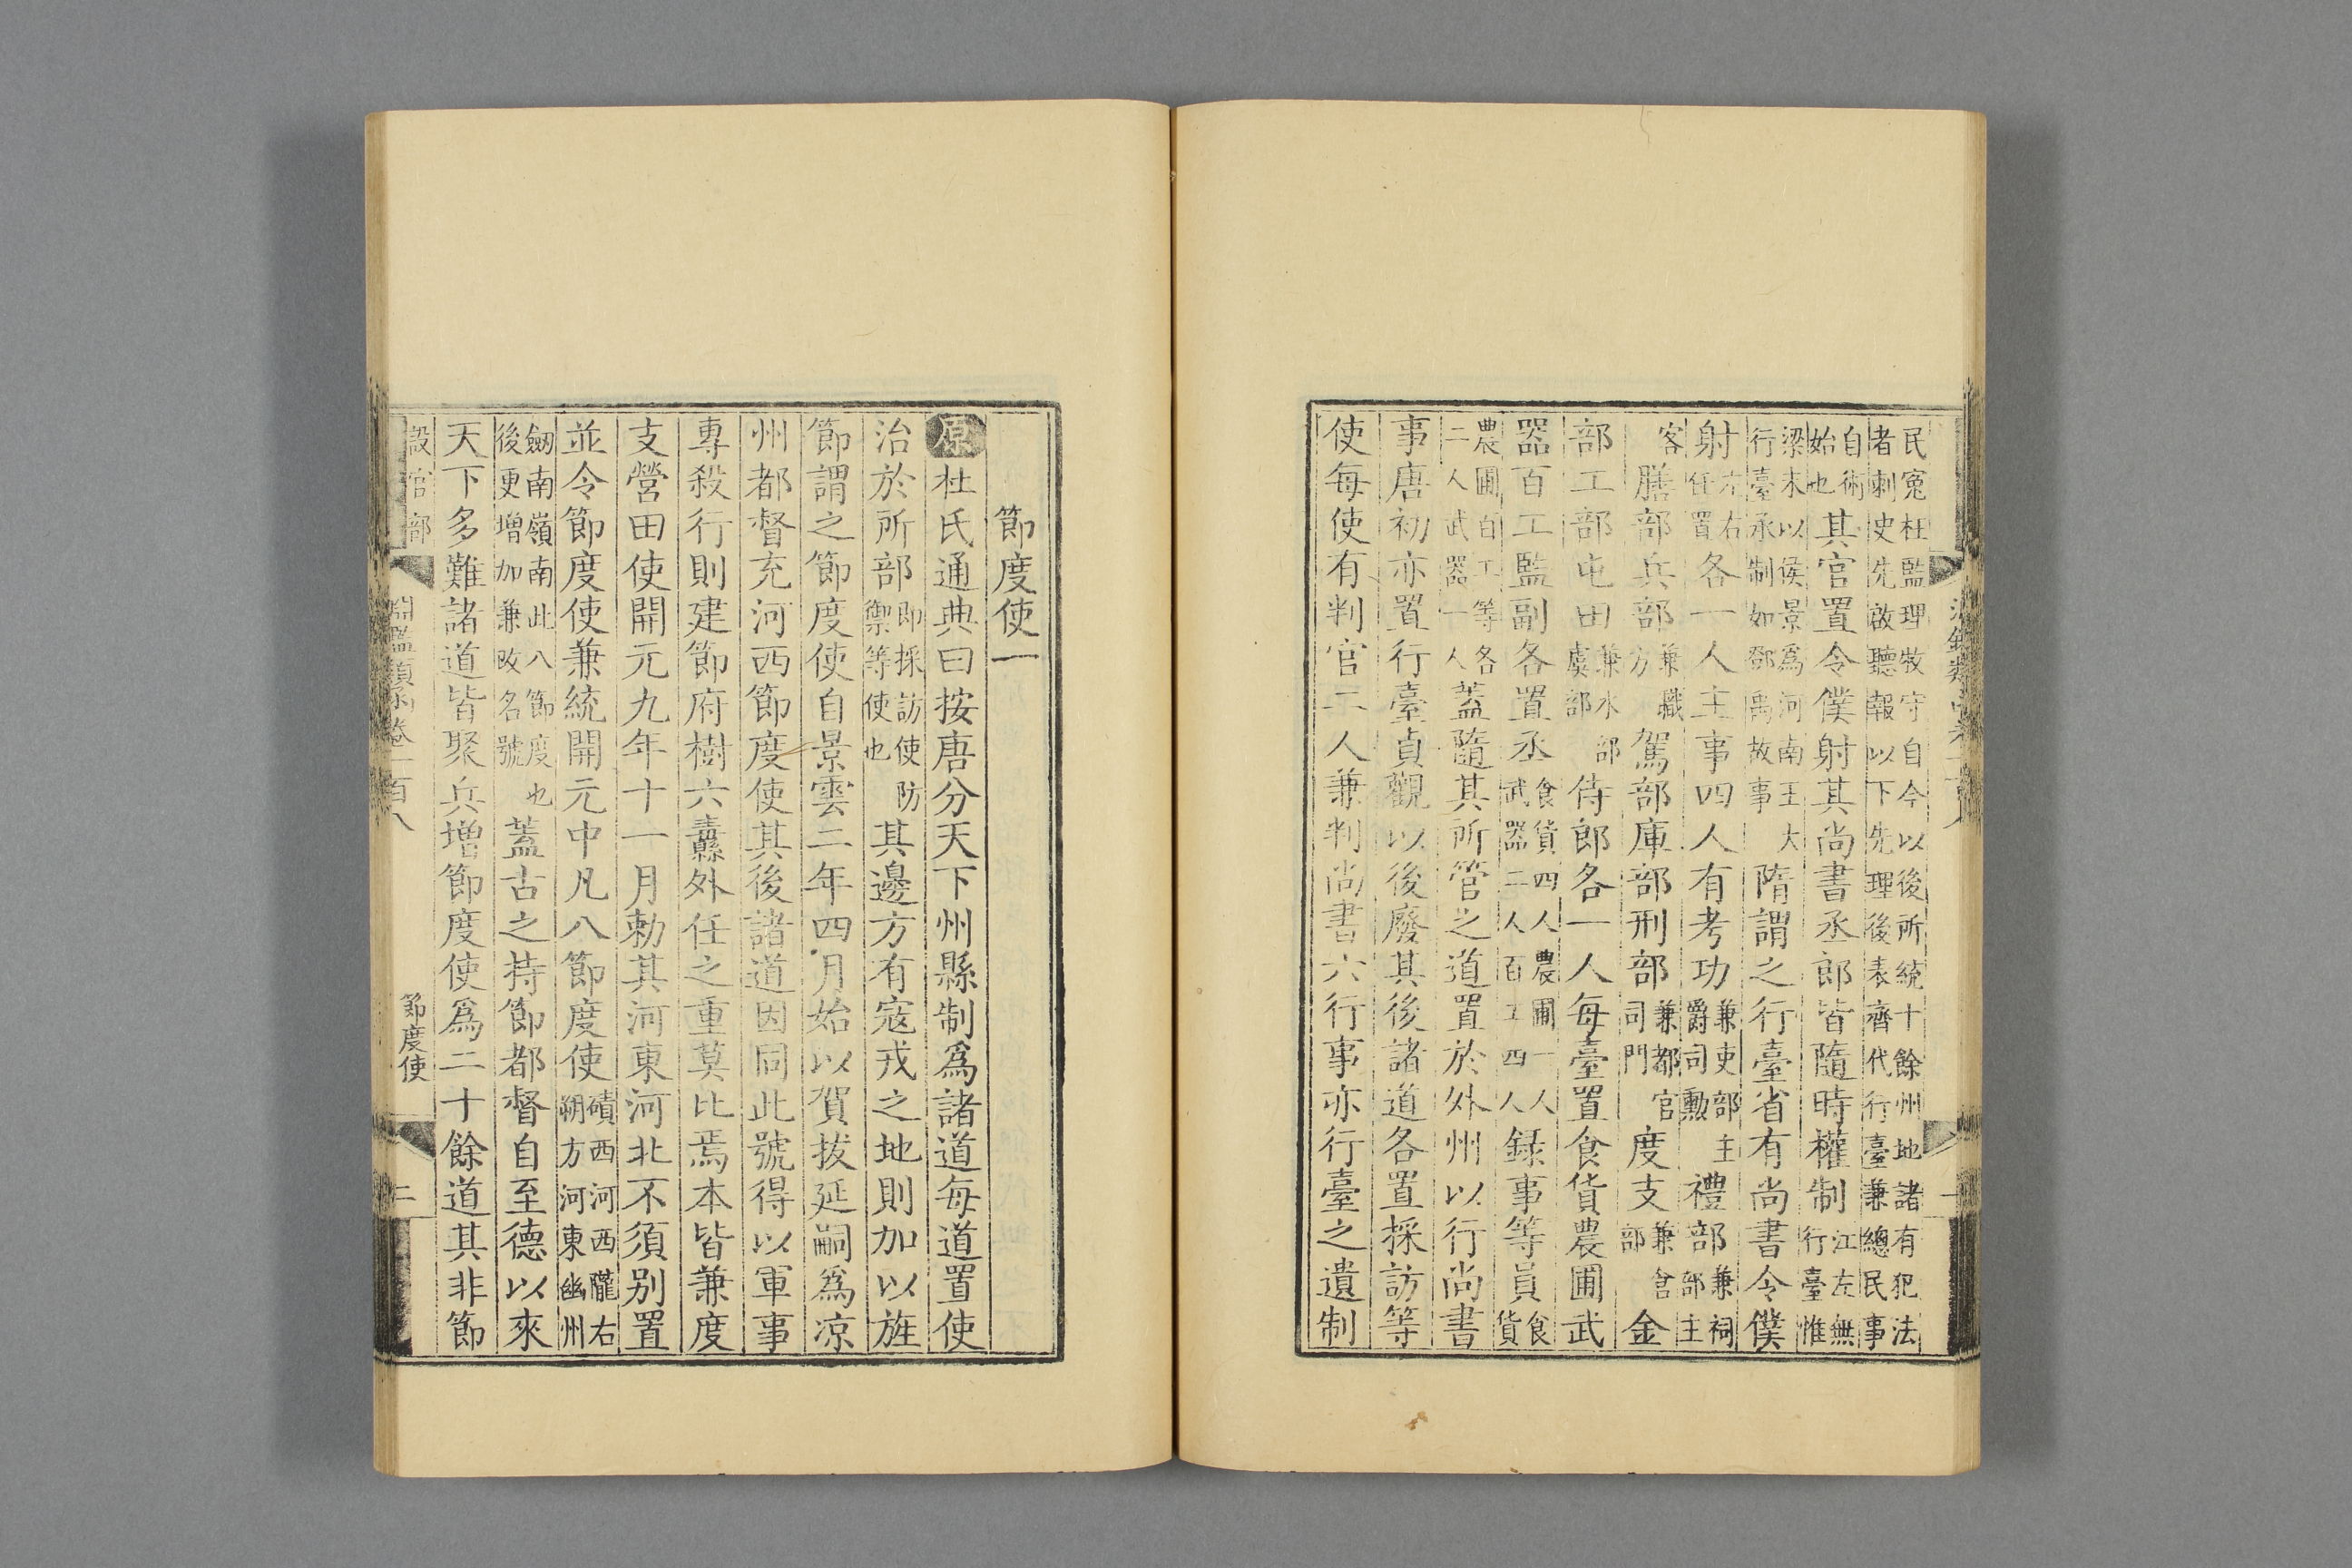 民寃枉監理牧守自今以後所統十餘州地諸有犯法者刺史先啟聽報以下先理後表齊代行臺兼總民事
自術始也其官置令僕射其尚書丞郎皆隨時權制江左無行臺惟
梁末以侯景爲河南王大行臺承制如鄧禹故事隋謂之行臺省有尚書令僕
射左右任置各一人主事四人有考功兼吏部主爵司勳禮部兼祠部主
客膳部兵部兼職方駕部庫部刑部兼都官司門度支兼倉部金
部工部屯田兼水部虞部侍郎各一人每臺置食貨農圃武
器百工監副各置丞食貨四人農圃一人武器二人百工四人録事等員食貨
農圃百工等各二人武器一人蓋隨其所管之道置於外州以行尚書
事唐初亦置行臺貞觀以後廢其後諸道各置採訪等
使每使有判官二人兼判尚書六行事亦行臺之遺制
節度使一
原杜氏通典曰按唐分天下州縣制爲諸道每道置使
治於所部即採訪使防禦等使也其邊方有寇戎之地則加以旌
節謂之節度使自景雲二年四月始以賀拔延嗣爲凉
州都督充河西節度使其後諸道因同此號得以軍事
專殺行則建節府樹六纛外任之重莫比焉本皆兼度
支營田使開元九年十一月勅其河東河北不須别置
並令節度使兼統開元中凡八節度使磧西河西隴右朔方河東幽州
劒南嶺南此八節度也後更增加兼改名號蓋古之持節都督自至德以來
天下多難諸道皆聚兵增節度使爲二十餘道其非節
設官部
淵鑑類函卷一百八
節度使
二